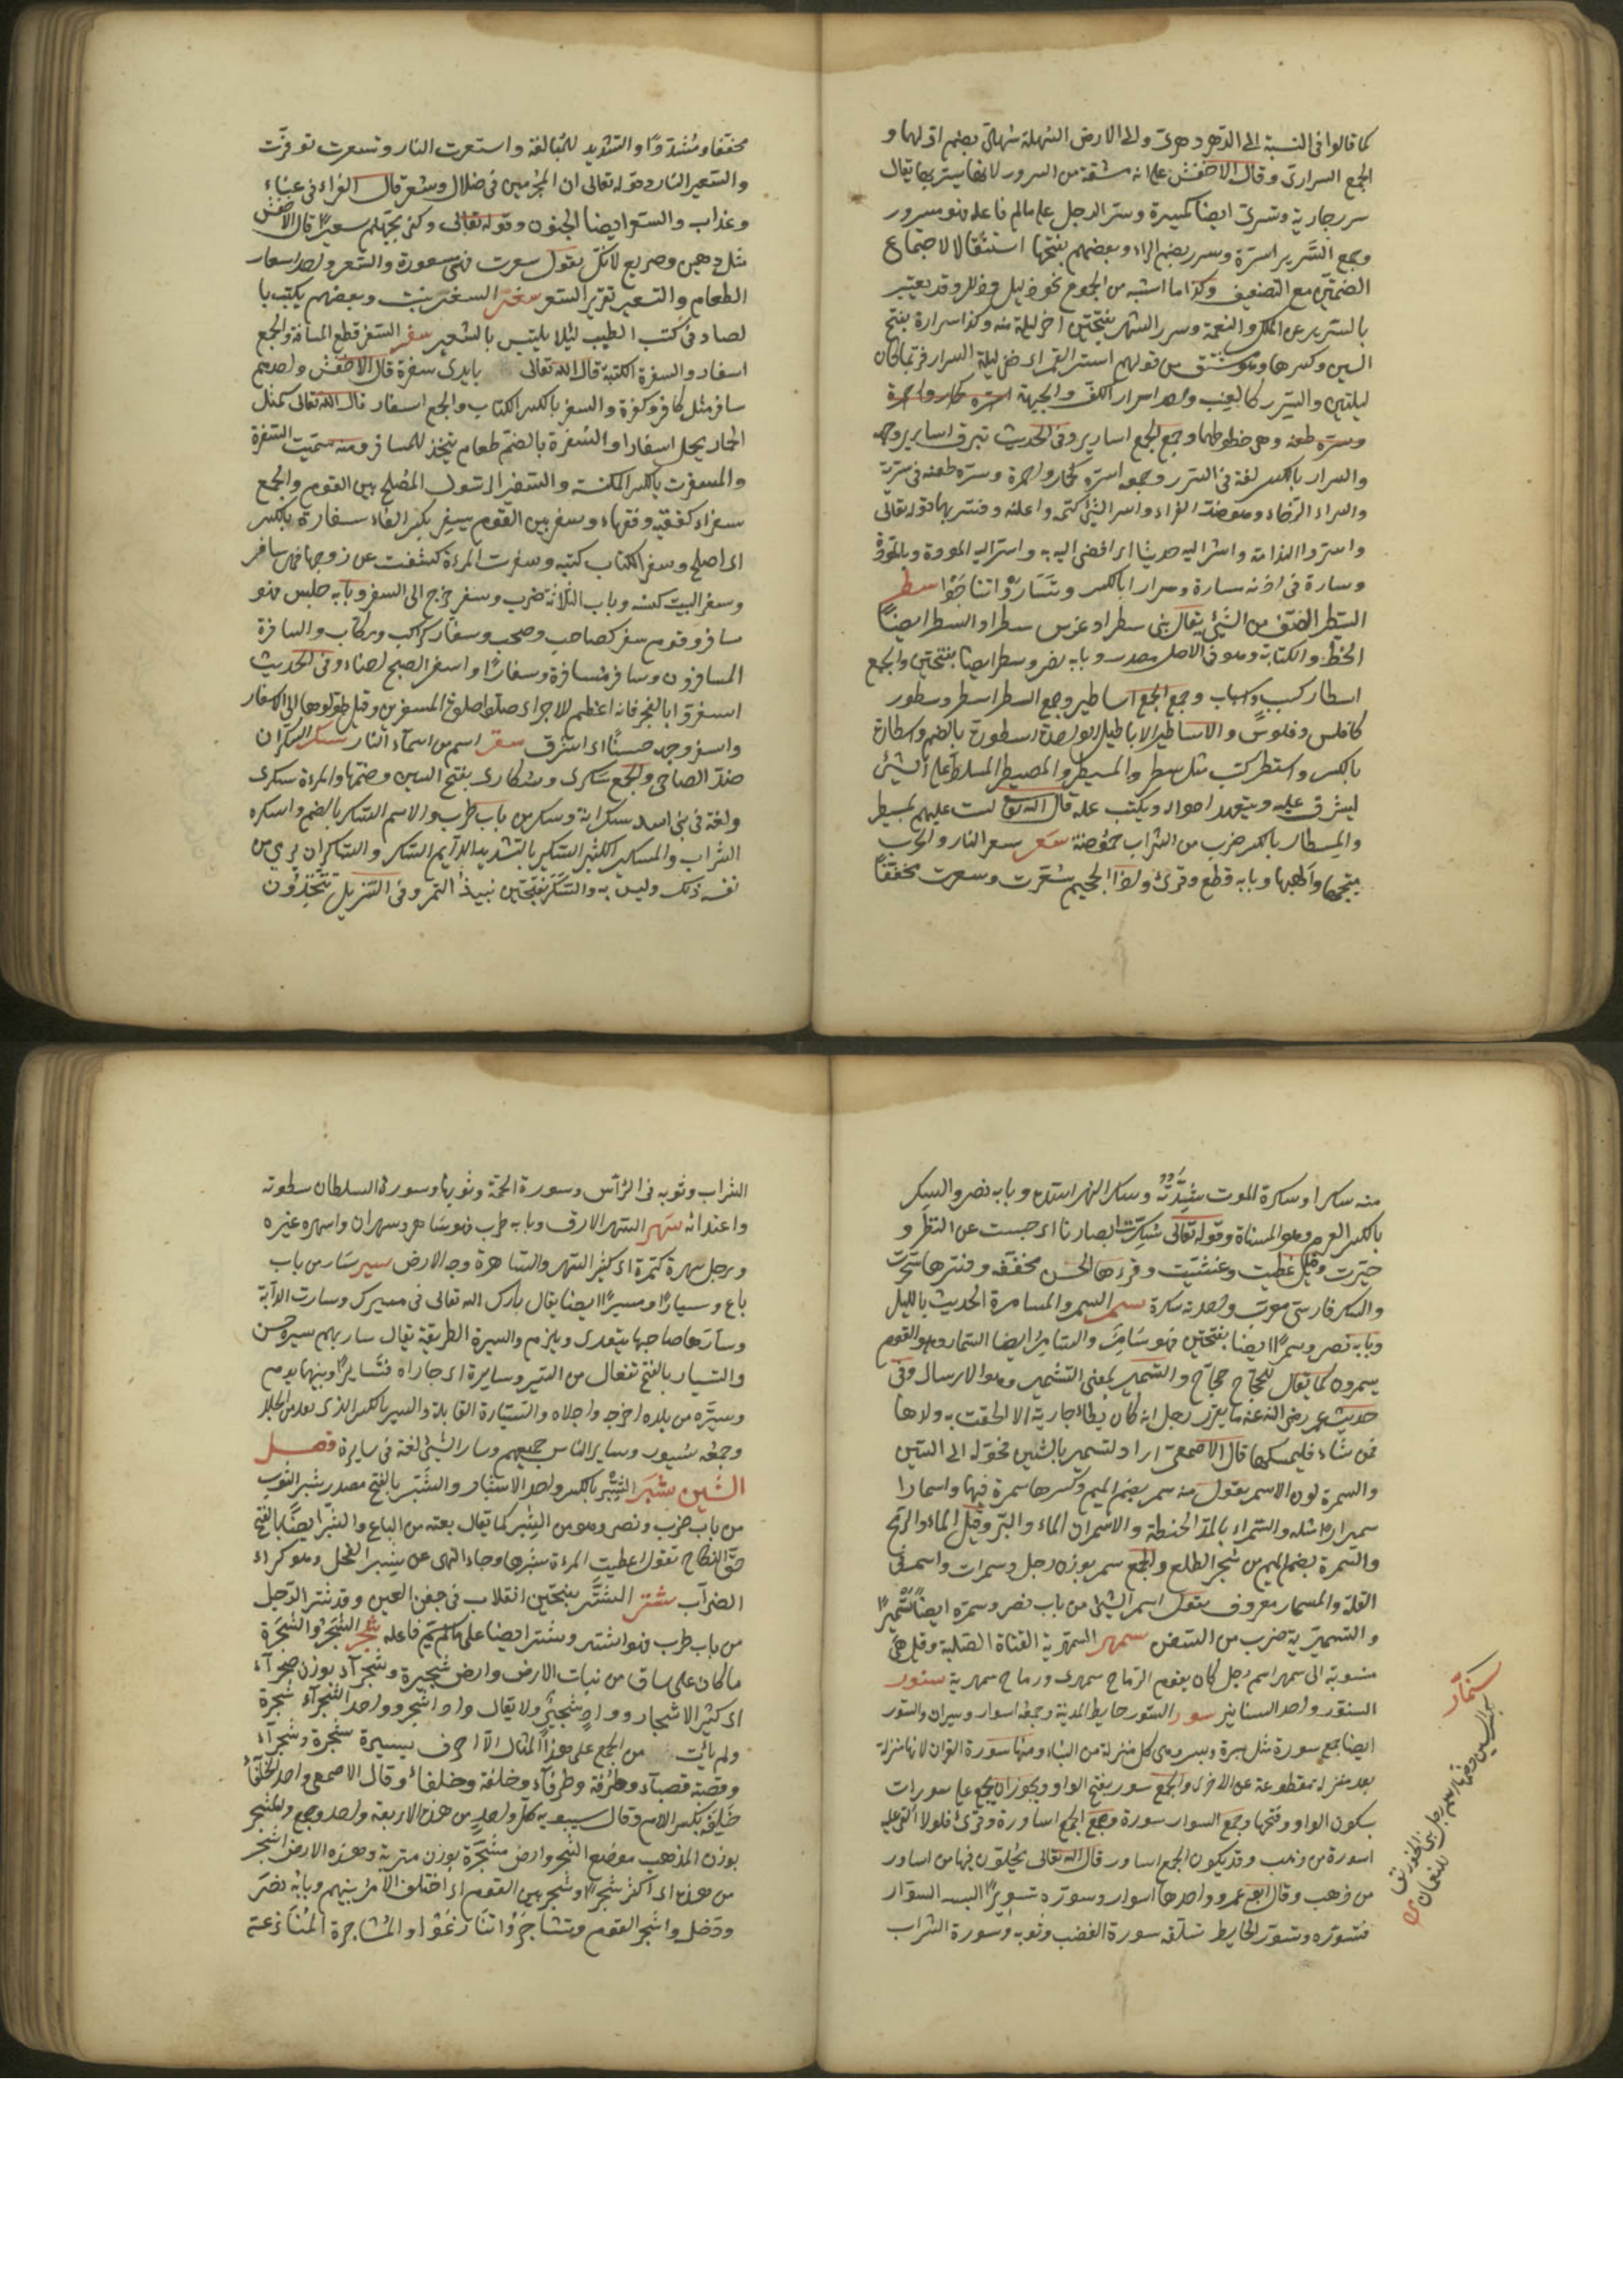 كما قالوا فى النسبة الى الدهر دهرى والى الارض السهلة سهلى بضم اولهما و
الجمع السرارى وقال الاخفش هى مشتقة من السرور لانها يسر بها يقال
سرر جارية وتسرى ايضا وسر الرجل على ما لم يسم فاعله فهو مسرور
وجمع السرير اسرة وسرر بضم الراء وبعضهم بفتحها استثقالا لاجتماع
الضمتين مع التضعيف وكذا ما اشبه من الجموع نحو ذليل وذلل وقد يعبر
بالسرير عن الملك والنعمة وسرر الشهر بفتحتين اخر ليلة منه وكذا سراره بفتح
السين وكسرها وهو مشتق من قولهم استسر القمر اى خفى ليلة السرار فربما كان
ليلتين والسرر كالعنب واحد اسرار الكف والجبهة
وهى خطوطها وجمع الجمع اسارير وفى الحديث تبرق اسارير وجهه
والسرار بالكسر لغة فى السرر وجمعه اسرة كحمار واحمرة وسره طعنه فى سرته
والسراء الرخاء وهو ضد الضراء واسر الشئ كتمه واعلنه وفسر بهما قوله تعالى
واسروا الندامة واسر اليه حديثا اى افضى اليه به واسر اليه المودة وبالمودة
وساره فى اذنه مسارة وسرارا بالكسر وتساروا تناجوا سطر
السطر الصف من الشئ يقال بنى سطرا وغرس سطرا والسطر ايضا
الخط والكتابة وهو فى الاصل مصدر وبابه نصر وسطر ايضا بفتحتين والجمع
اسطار كسبب واسباب وجمع الجمع اساطير وجمع السطر اسطر وسطور
كافلس وفلوس والاساطير الاباطيل الواحدة اسطورة بالضم واسطارة
بالكسر واستطر كتب مثل سطر والمسيطر والمصيطر المسلط على الشئ
ليشرف عليه ويتعهد احواله ويكتب عمله قال الله تعالى لست عليهم بمسيطر
والمسطار بالكسر ضرب من الشراب حموضة سعر سعر النار والحرب
هيجها والهبها وبابه قطع وقرئ واذا الجحيم سعرت وسعرت مخففا
مخففا ومشددا والتشديد للمبالغة واستعرت النار وتسعرت توقدت
والسعير النار وقوله تعالى ان المجرمين فى ضلال وسعر قال الفراء فى عناء
وعذاب والسعر ايضا الجنون وقوله تعالى وكفى بجهنم سعيرا قال الاخفش
مثل دهين وصريع لانك تقول سعرت فهى مسعورة والسعر واحد اسعار
الطعام والتسعير تقرير السعر سعتر السعتر نبت وبعضهم يكتبه با
لصاد فى كتب الطيب لئلا يلتبس بالشعير سفر السفر قطع المسافة والجمع
اسفار والسفرة الكتبة قال الله تعالى بايدى سفرة قال الاخفش واحدهم
سافر مثل كافر وكفرة والسفر بالكسر الكتاب والجمع اسفار قال الله تعالى كمثل
الحمار يحمل اسفارا والسفرة بالضم طعام يتخذ للمسافر ومنه سميت السفرة
والمسفرة بالكسر المكنسة والسفير الرسول المصلح بين القوم والجمع
سفراء كفقيه وفقهاء وسفر بين القوم يسفر بكسر الفاء سفارة بالكسر
اى اصلح وسفر الكتاب كتبه وسفرت المرءة كشفت عن وجهها فهى سافر
وسفر البيت كنسه وباب الثلاثة ضرب وسفر خرج الى السفر وبابه جلس فهو
سافر وقوم سفر كصاحب وصحب وسفار كراكب وركاب والسافرة
المسافرون وسافر مسافرة وسفارا واسفر الصبح اضاء وفى الحديث
اسفروا بالفجر فانه اعظم للاجر اى صلوا صلوة الفجر مسفرين وقيل طولوها الى الاسفار
واسفر وجهه حسنا اى اشرق سقر اسم من اسماء النار سكر السكران
ضد الصاحى والجمع سكرى وسكارى بفتح السين وضمها والمرءة سكرى
ولغة فى بنى اسد سكرانة وسكر من باب طرب والاسم السكر بالضم واسكره
الشراب والمسكير الكثير السكر والسكير بالتشديد الدائم السكر والتساكر ان يرى من
نفسه ذلك وليس به والسكر بفتحتين نبيذ التمر وفى التنزيل تتخذون
منه سكرا وسكرة الموت شدته وسكر النهر سده وبابه نصر والسكر
بالكسر العرم وهو المسناة وقوله تعالى سكرت ابصارنا اى حبست عن النظر و
حيرت وقيل غطيت وغشيت وقرءها الحسن مخففة وفسرها سحرت
والسكر فارسى معرب واحدته سكرة سمر السمر والمسامرة الحديث بالليل
وبابه نصر وسمرا ايضا بفتحتين فهو سامر والسامر ايضا السمار وهو القوم
يسمرون كما يقال للحجاج حاج والتسمير بمعنى التشمير وهو الارسال وفى
حديث عمر رضى الله عنه ما يقر رجل انه كان يطأ جاريته الا الحقت به ولدها
فمن شاء فليمسكها قال الاصمعى اراد التشمير بالشين فحوله الى السين
والسمرة لون الاسمر يقول منه سمر بضم الميم وكسرها سمرة فيهما واسمار
اسميرارا مثله والسمراء بالمد الحنطة والاسمران الماء والبر وقيل الماء والرمح
والسمرة بضم الميم من شجر الطلح والجمع سمر بوزن رجل وسمرات واسمر فى
القلة والمسمار معروف يقول سمر الشئ من باب نصر وسمره ايضا تسميرا
والسميرية ضرب من السفن سمهر السمهرية القناة الصلبة وقيل هى
منسوبة الى سمهر اسم رجل كان يقوم الرماح سمهرى ورماح سمهرية سنور
السنور واحد السنانير سور السور حايط المدينة وجمعه اسوار وسيران والسور
ايضا جمع سورة مثل بسرة وبسر وهى كل منزلة من البناء ومنها سورة القران لانها منزلة
بعد منزلة مقطوعة عن الاخرى والجمع سور بفتح الواو ويجوز ان يجمع على سورات
بسكون الواو وفتحها وجمع السوار اسورة وجمع الجمع اساورة وقرئ فلولا القى عليه
اسورة من ذهب وقد يكون الجمع اساور قال الله تعالى يحلون فيها من اساور
من ذهب وقال ابو عمرو واحدها اسوار وسوره تسويرا البسه السوار
فتسوره وتسور الحايط تسلقه سورة الغضب وثوبه وسورة الشراب
سنمار
بكسر السين اسم رجل بنى الخورنق
للنعمان
الشراب وثوبه فى الرأس وسورة الحمة وثوبها وسورة السلطان سطوته
واعتداؤه سهر السهر الارق وبابه طرب فهو ساهر وسهران واسهره غيره
ورجل سهرة كهمزة اى كثير السهر والساهرة وجه الارض سير سار من باب
باع وسيارا ومسيرا ايضا يقال بارك الله تعالى فى مسيرك وسارت الدابة
وسارها صاحبها يتعدى ويلزم والسيرة الطريقة يقال سار بهم سيرة حسن
والتسيار بالفتح تفعال من السير وسايره اى جاراه فتسايرا وبينهما يوم
وسيره من بلده اخرجه واجلاه والسيارة القافلة والسير بالكسر الذى يقد من الجلد
وجمعه سيور وساير الناس جميعهم وسار الشئ لغة فى سايره فصل
الشين شبر الشبر بالكسر واحد الاشبار والشبر بالفتح مصدر شبر الثوب
من باب ضرب ونصر وهو من الشبر كما تقال بعته من الباع والشبر ايضا بالفتح
حق النكاح تقول اعطيت المرءة شبرها وجاء النهى عن شبر الفحل وهو كراء
الضراب شتر الشتر بفتحتين انقلاب فى جفن العين وقد شتر الرجل
من باب طرب فهو اشتر وشتر ايضا على ما لم يسم فاعله شجر الشجر والشجرة
ما كان على ساق من نبات الارض وارض شجيرة وشجراء بوزن صحراء
اى كثير الاشجار وواد شجير ولا يقال واد اشجر وواحد الشجراء شجرة
ولم يأت من الجمع على هذا المثال الا احرف يسيرة شجرة وشجراء
وقصبة وقصباء وطرفة وطرفاء وحلفة وحلفاء وقال الاصمعى واحد الحلفاء
حلفة بكسر اللام وقال سيبويه كل واحد من هذه الاربعة واحد وجمع والمشجر
بوزن المذهب موضع الشجر وارض مشجرة بوزن متربة وهذه الارض اشجر
من هذه اى اكثر شجرا وشجر بين القوم اى اختلف الامر بينهم وبابه نصر
ودخل واشتجر القوم وتشاجروا تنازعوا والمشاجرة المنازعة